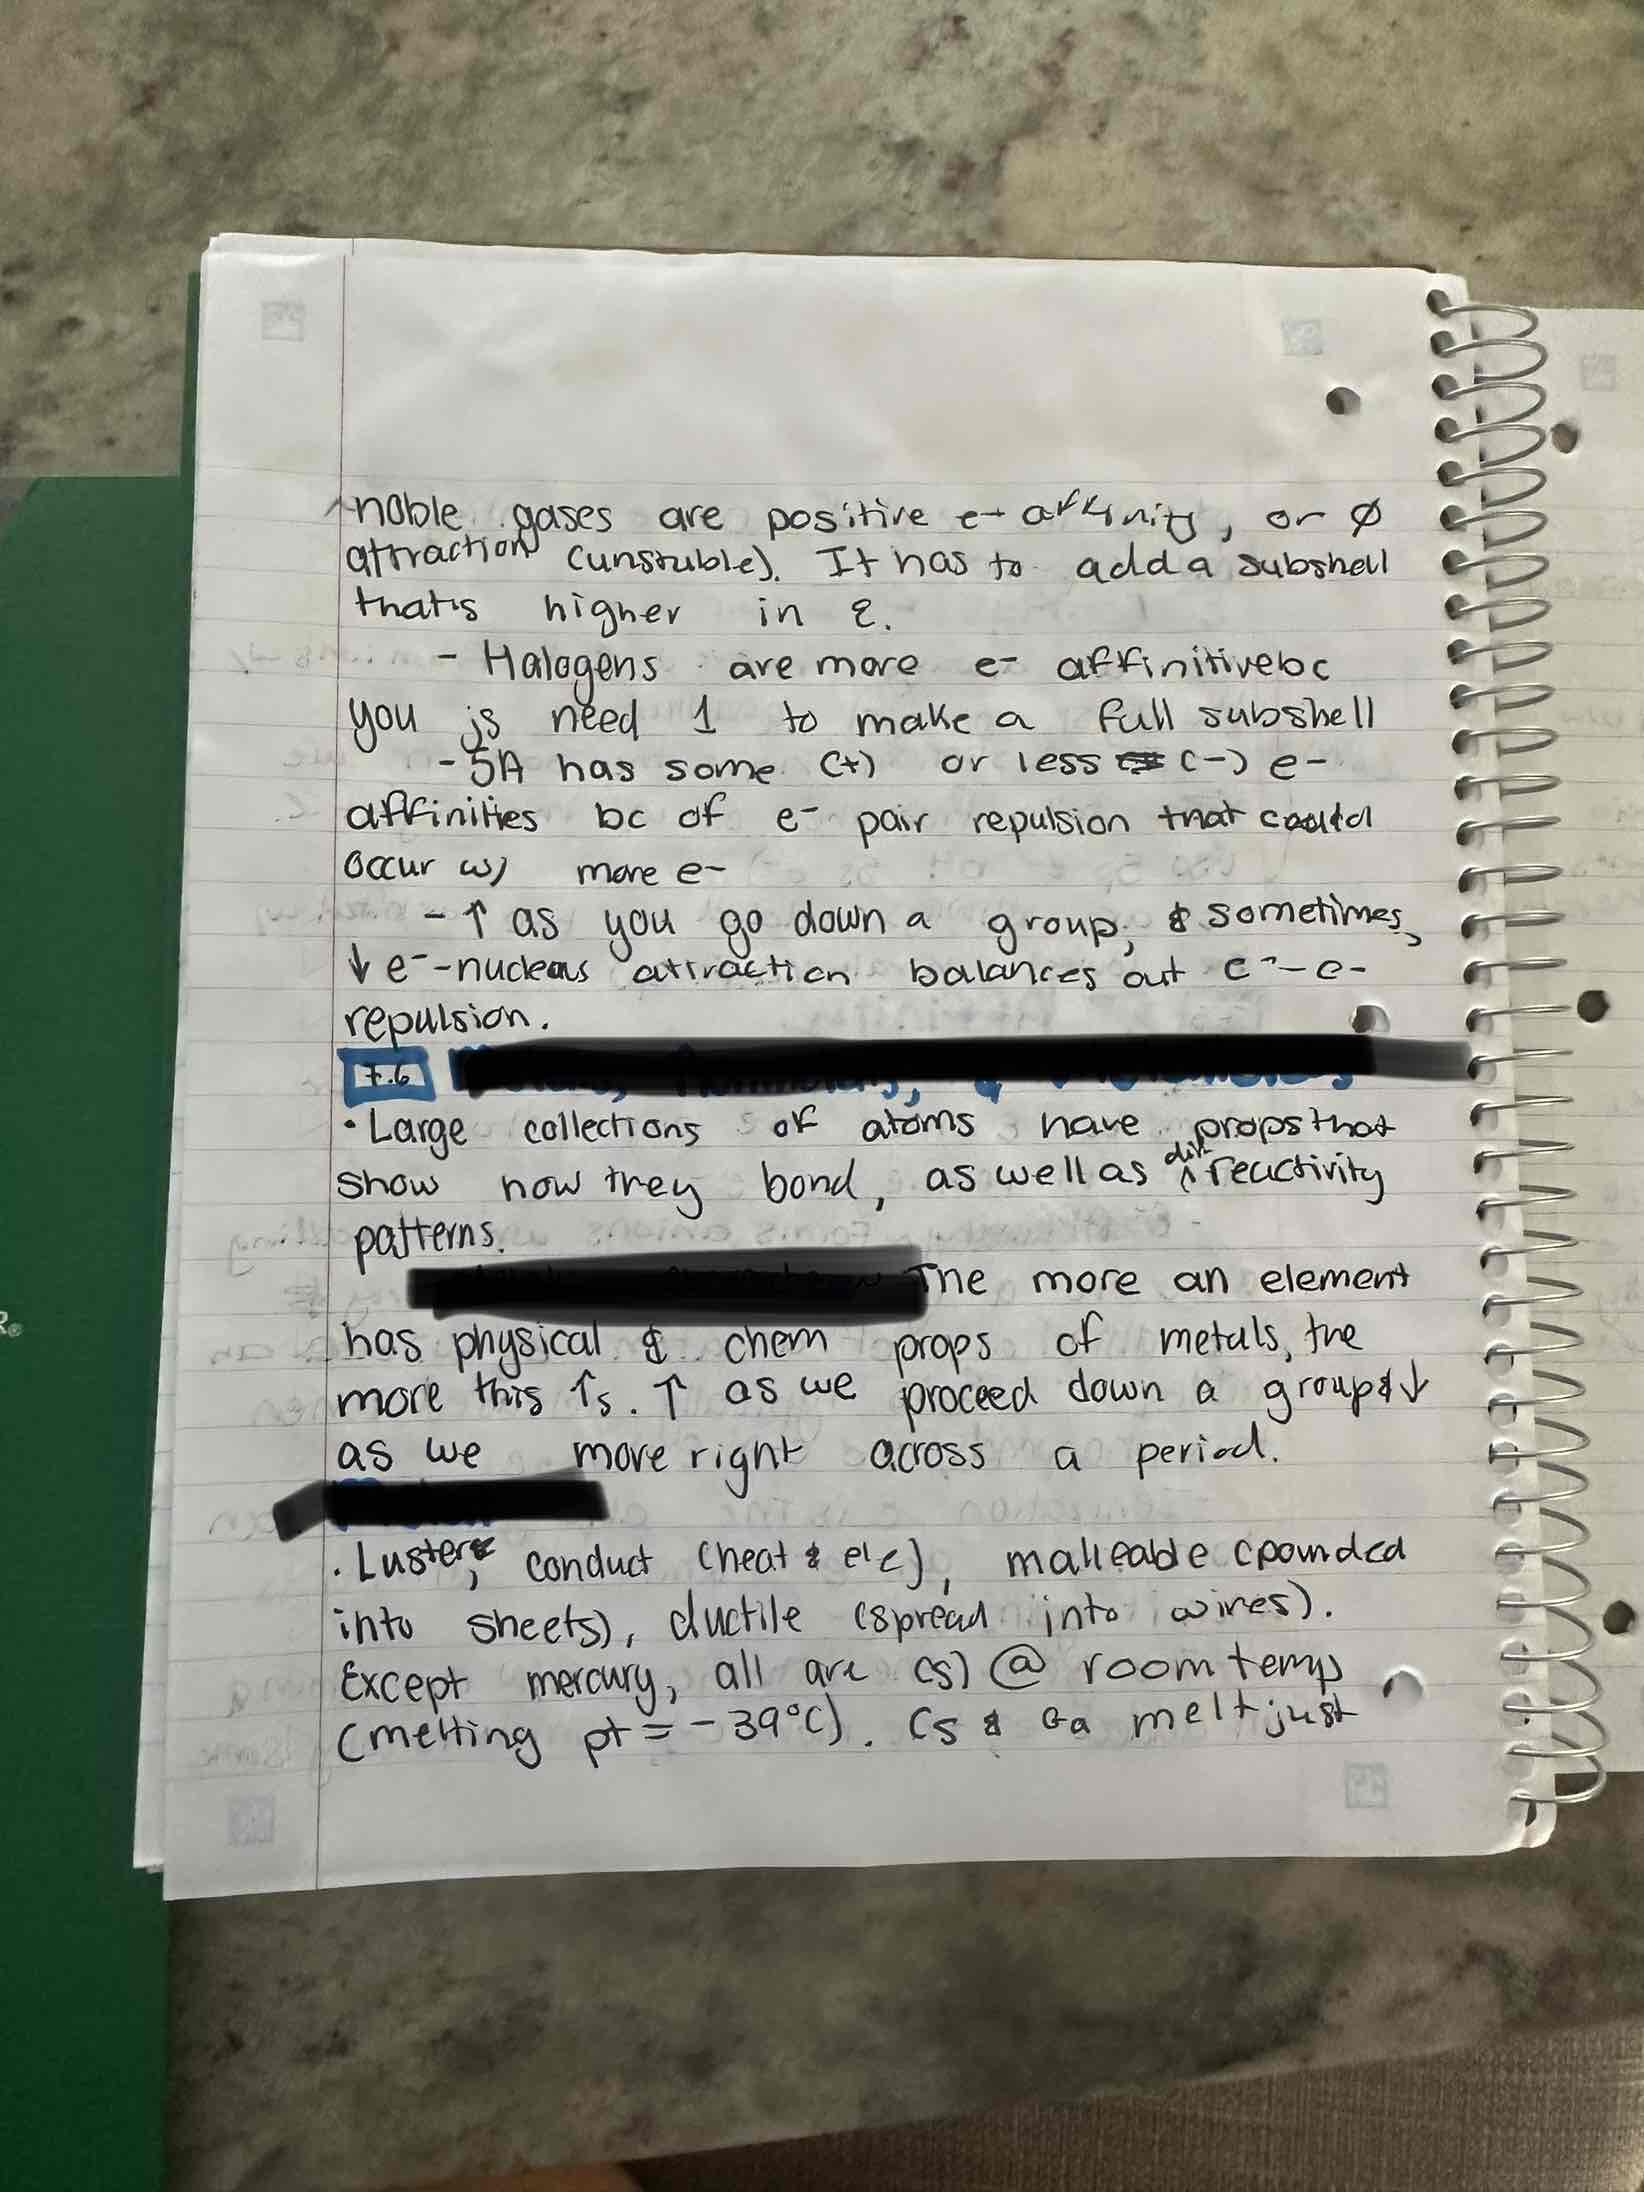 noble gases are positive e- affinity, or Ø
attraction (unstable). It has to add a subshell
that's higher in ε.
- Halogens are more e- affinitive bc
you js need 1 to make a full subshell
- 5A has some (+) or less (-) e-
affinities bc of e- pair repulsion that could
occur w/ more e-
- ↑ as you go down a group, & sometimes
↓ e--nucleus attraction balances out e--e-
repulsion.
7.6
• Large collections of atoms have props that
show how they bond, as well as diff reactivity
patterns.
The more an element
has physical & chem props of metals, the
more this ↑s. ↑ as we proceed down a group & ↓
as we move right across a period.
• Luster, conduct (heat & elc), malleable (pounded
into sheets), ductile (spread into wires).
Except mercury, all are (s) @ room temp
(melting pt = -39°C). Cs & Ga melt just